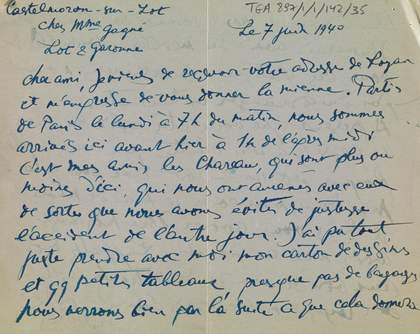 Castelmoron-sur-Lot TGA 897/1/1/142/35
chez Mme Gagné
Lot & Garonne Le 7 juin 1940
cher ami, je viens de recevoir votre adresse de Royan
et m'empresse de vous donner la mienne. Partis
de Paris le lundi à 7h du matin, nous sommes
arrivés ici avant hier à 1h de l'après midi
c'est mes amis les Chareau, qui sont plus ou
moins d'ici, qui nous ont amenés avec eux
de sortes que nous avons évités de justesse
l'accident de l'autre jour. J'ai pu tout
juste prendre avec moi mon carton de dessins
et qq petits tableaux presque pas de bagages
nous verrons bien par la suite a que cela donnera